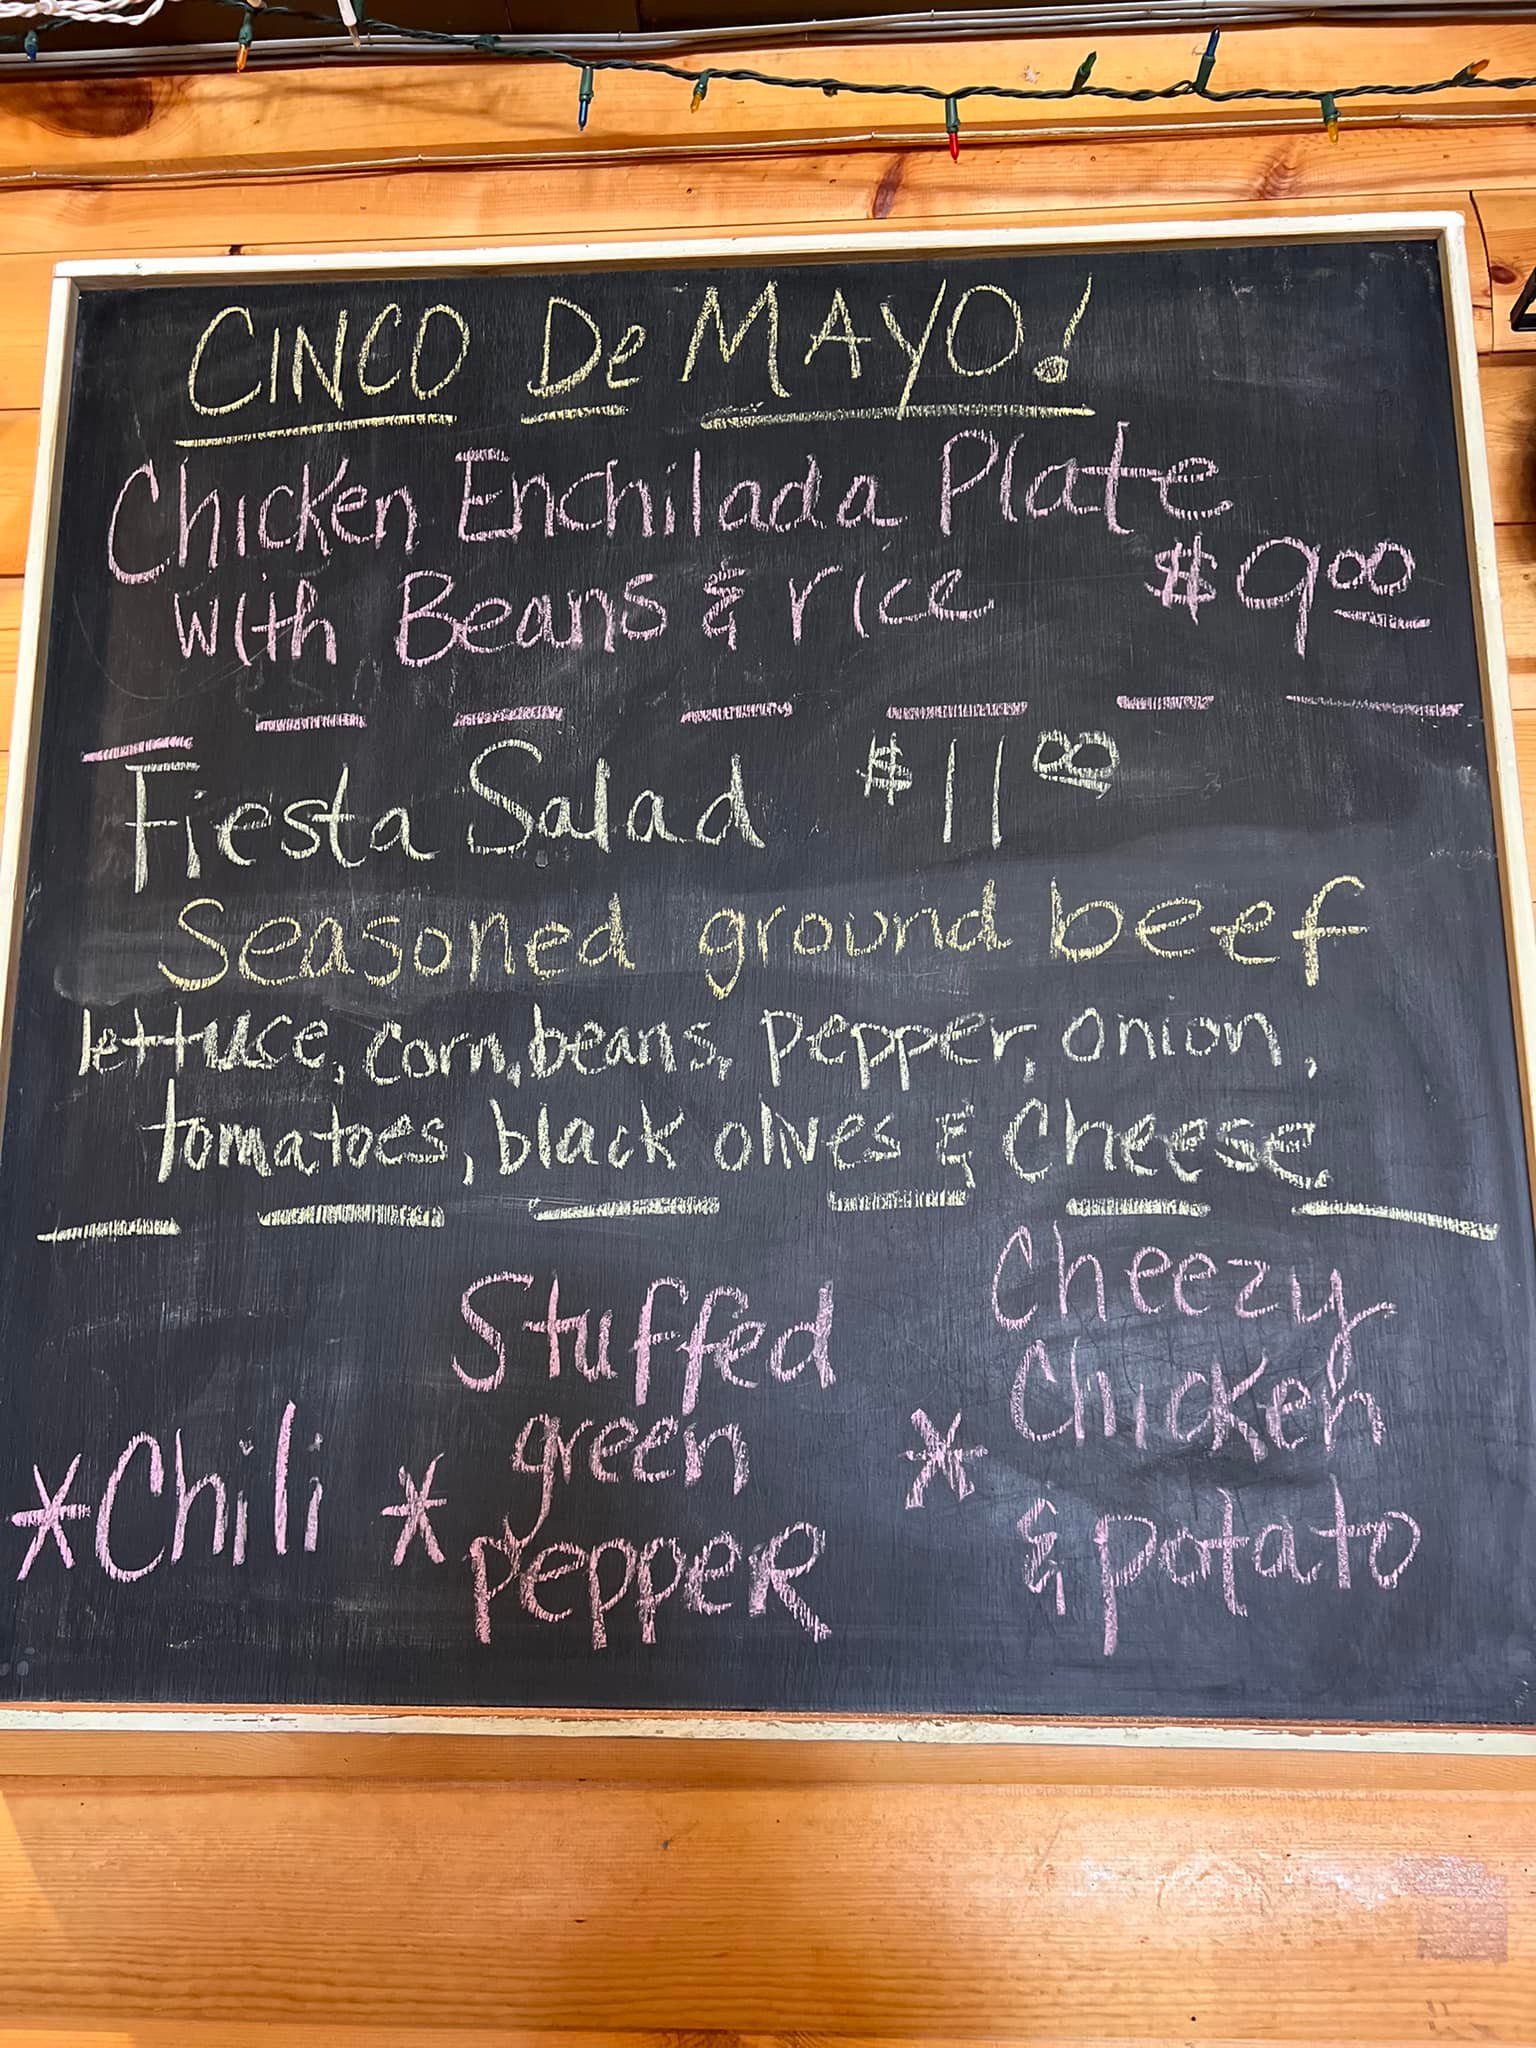 CINCO De MAYO!
Chicken Enchilada Plate
with Beans & rice $9.00
Fiesta Salad $11.00
Seasoned ground beef
lettuce, corn, beans, pepper, onion,
tomatoes, black olives & Cheese
*Chili
* Stuffed
green
pepper
* Cheezy
Chicken
& potato